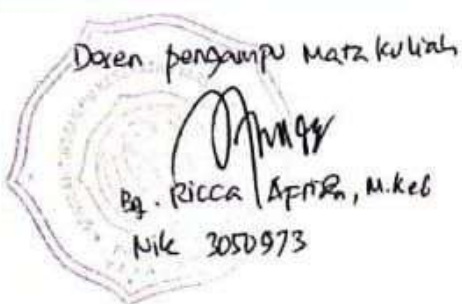 Dosen pengampu Mata kuliah
Bq. Ricca Afrida, M.Keb
Nik 3050973